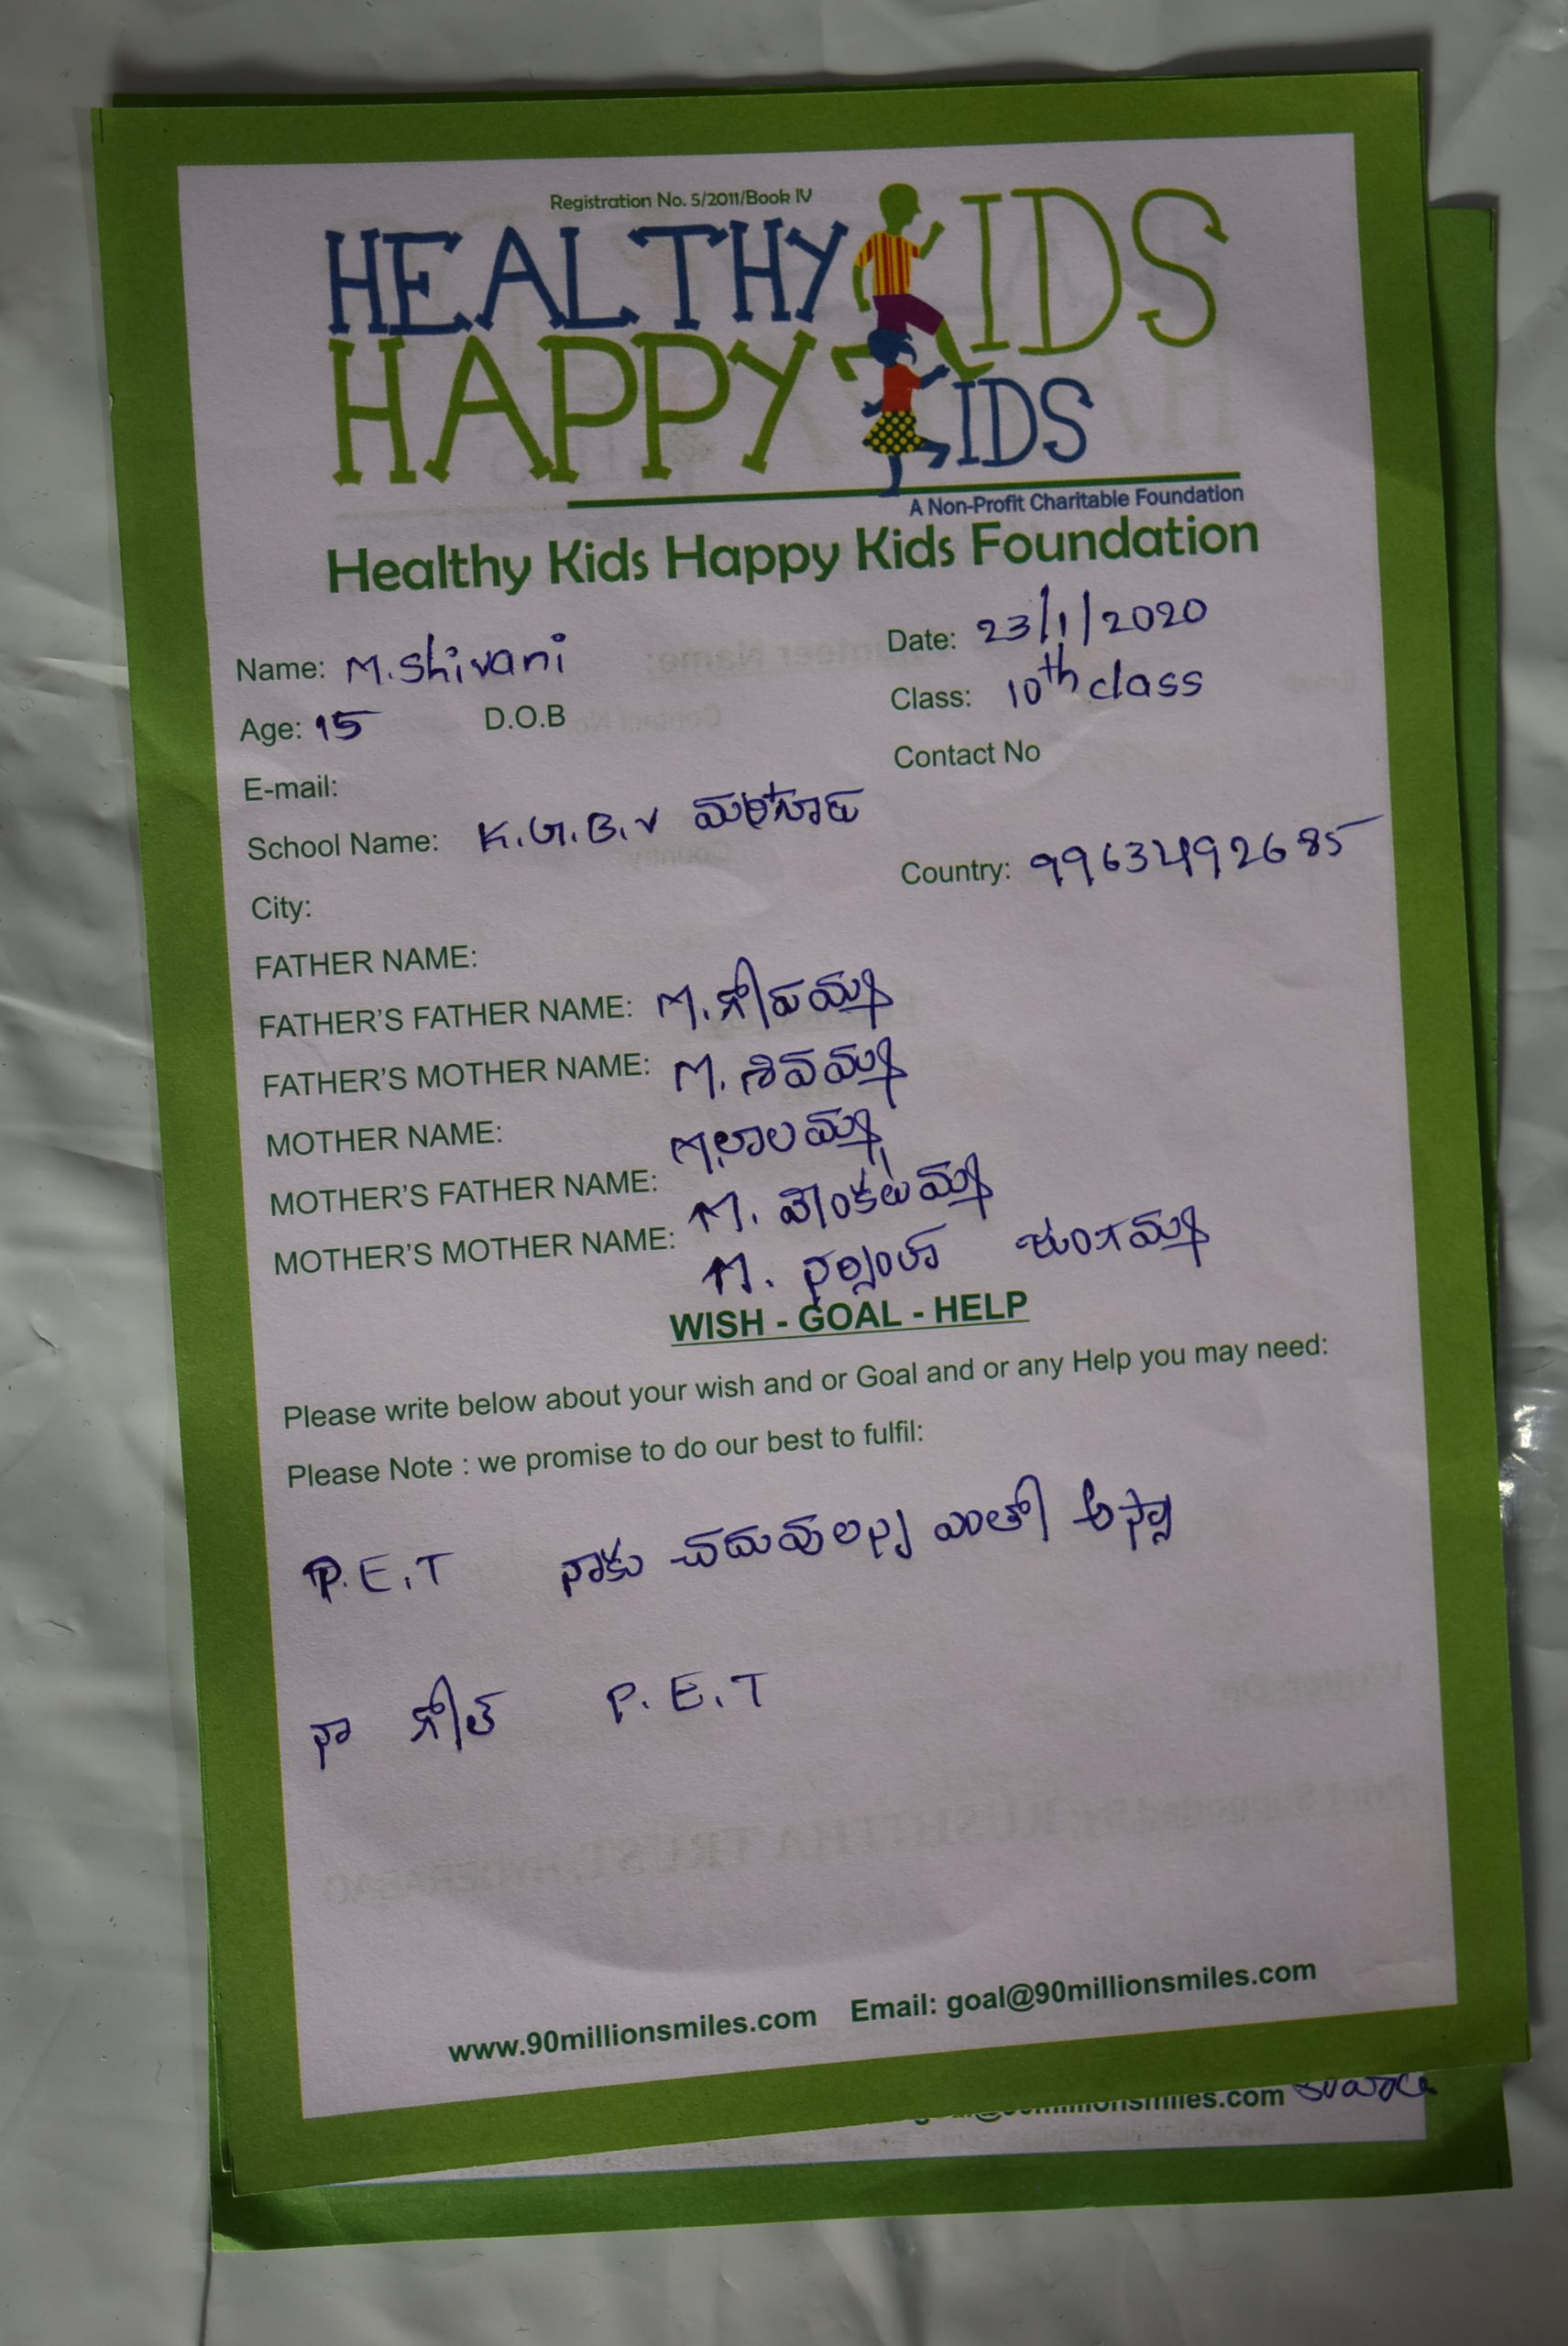 Registration No. 5/2011/Book IV
HEALTHY KIDS
HAPPY KIDS
A Non-Profit Charitable Foundation
Healthy Kids Happy Kids Foundation
Name: M.Shivani Date: 23/1/2020
Age: 15 D.O.B Class: 10th class
E-mail: Contact No
School Name: K.G.B.V
City: Country: 99632492685
FATHER NAME:
FATHER'S FATHER NAME: M.
FATHER'S MOTHER NAME: M. శివమ్మ
MOTHER NAME: M.బాలమ్మ
MOTHER'S FATHER NAME: M. వెంకటమ్మ
MOTHER'S MOTHER NAME: M. జంగమ్మ
WISH - GOAL - HELP
Please write below about your wish and or Goal and or any Help you may need:
Please Note : we promise to do our best to fulfil:
P.E.T నాకు చదువులన్న ఎంతో
నా గోల్ P.E.T
www.90millionsmiles.com Email: goal@90millionsmiles.com